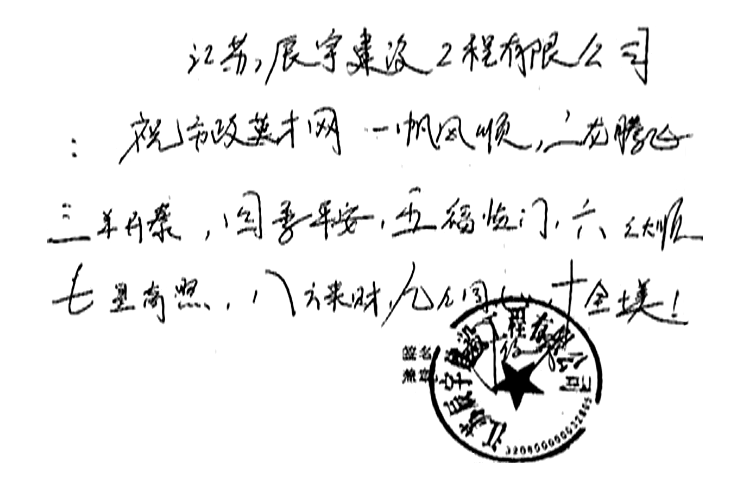 江苏辰宇建设工程有限公司
:祝市政英才网一帆风顺,二龙腾飞
三羊开泰,四季平安,五福临门,六六大顺
七星高照,八方来财,九九同心,十全十美!
签名
盖章
江苏辰宇建设工程有限公司